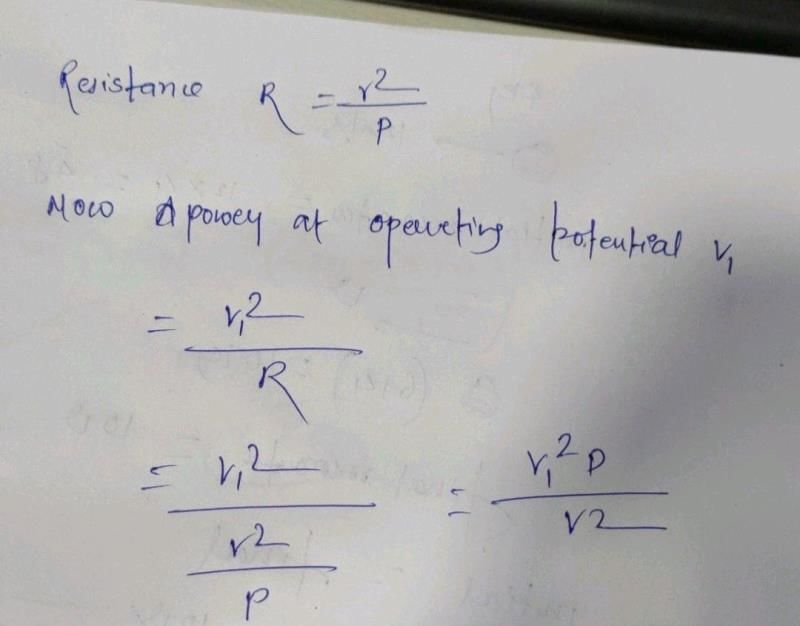 Resistance R = v²/P
Now power at operating potential V₁
= V₁²/R
= V₁²/(v²/P) = V₁²P/V²